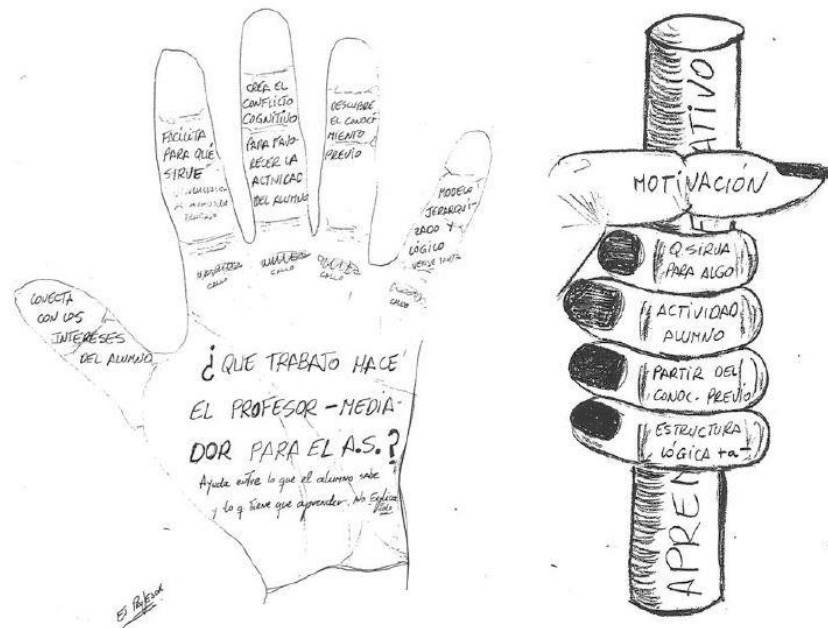 CONECTA
CON LOS
INTERESES
DEL ALUMNO
FACILITA
PARA QUÉ
SIRVE
CREA EL
CONFLICTO
COGNITIVO
PARA FAVO-
RECER LA
ACTIVIDAD
DEL ALUMNO
DESCUBRE
EL CONOCI
MIENTO
PREVIO
MODELO
JERARQUI-
ZADO Y
LÓGICO
CALLO
CALLO
CALLO
CALLO
¿QUE TRABAJO HACE
EL PROFESOR-MEDIA-
DOR PARA EL A.S.?
Ayuda entre lo que el alumno sabe
y lo q tiene que aprender. No Explica
Solo
El Profesor
ATIVO
MOTIVACIÓN
Q. SIRVA
PARA ALGO
ACTIVIDAD
ALUMNO
PARTIR DEL
CONOC. PREVIO
ESTRUCTURA
LÓGICA +a-
APREN